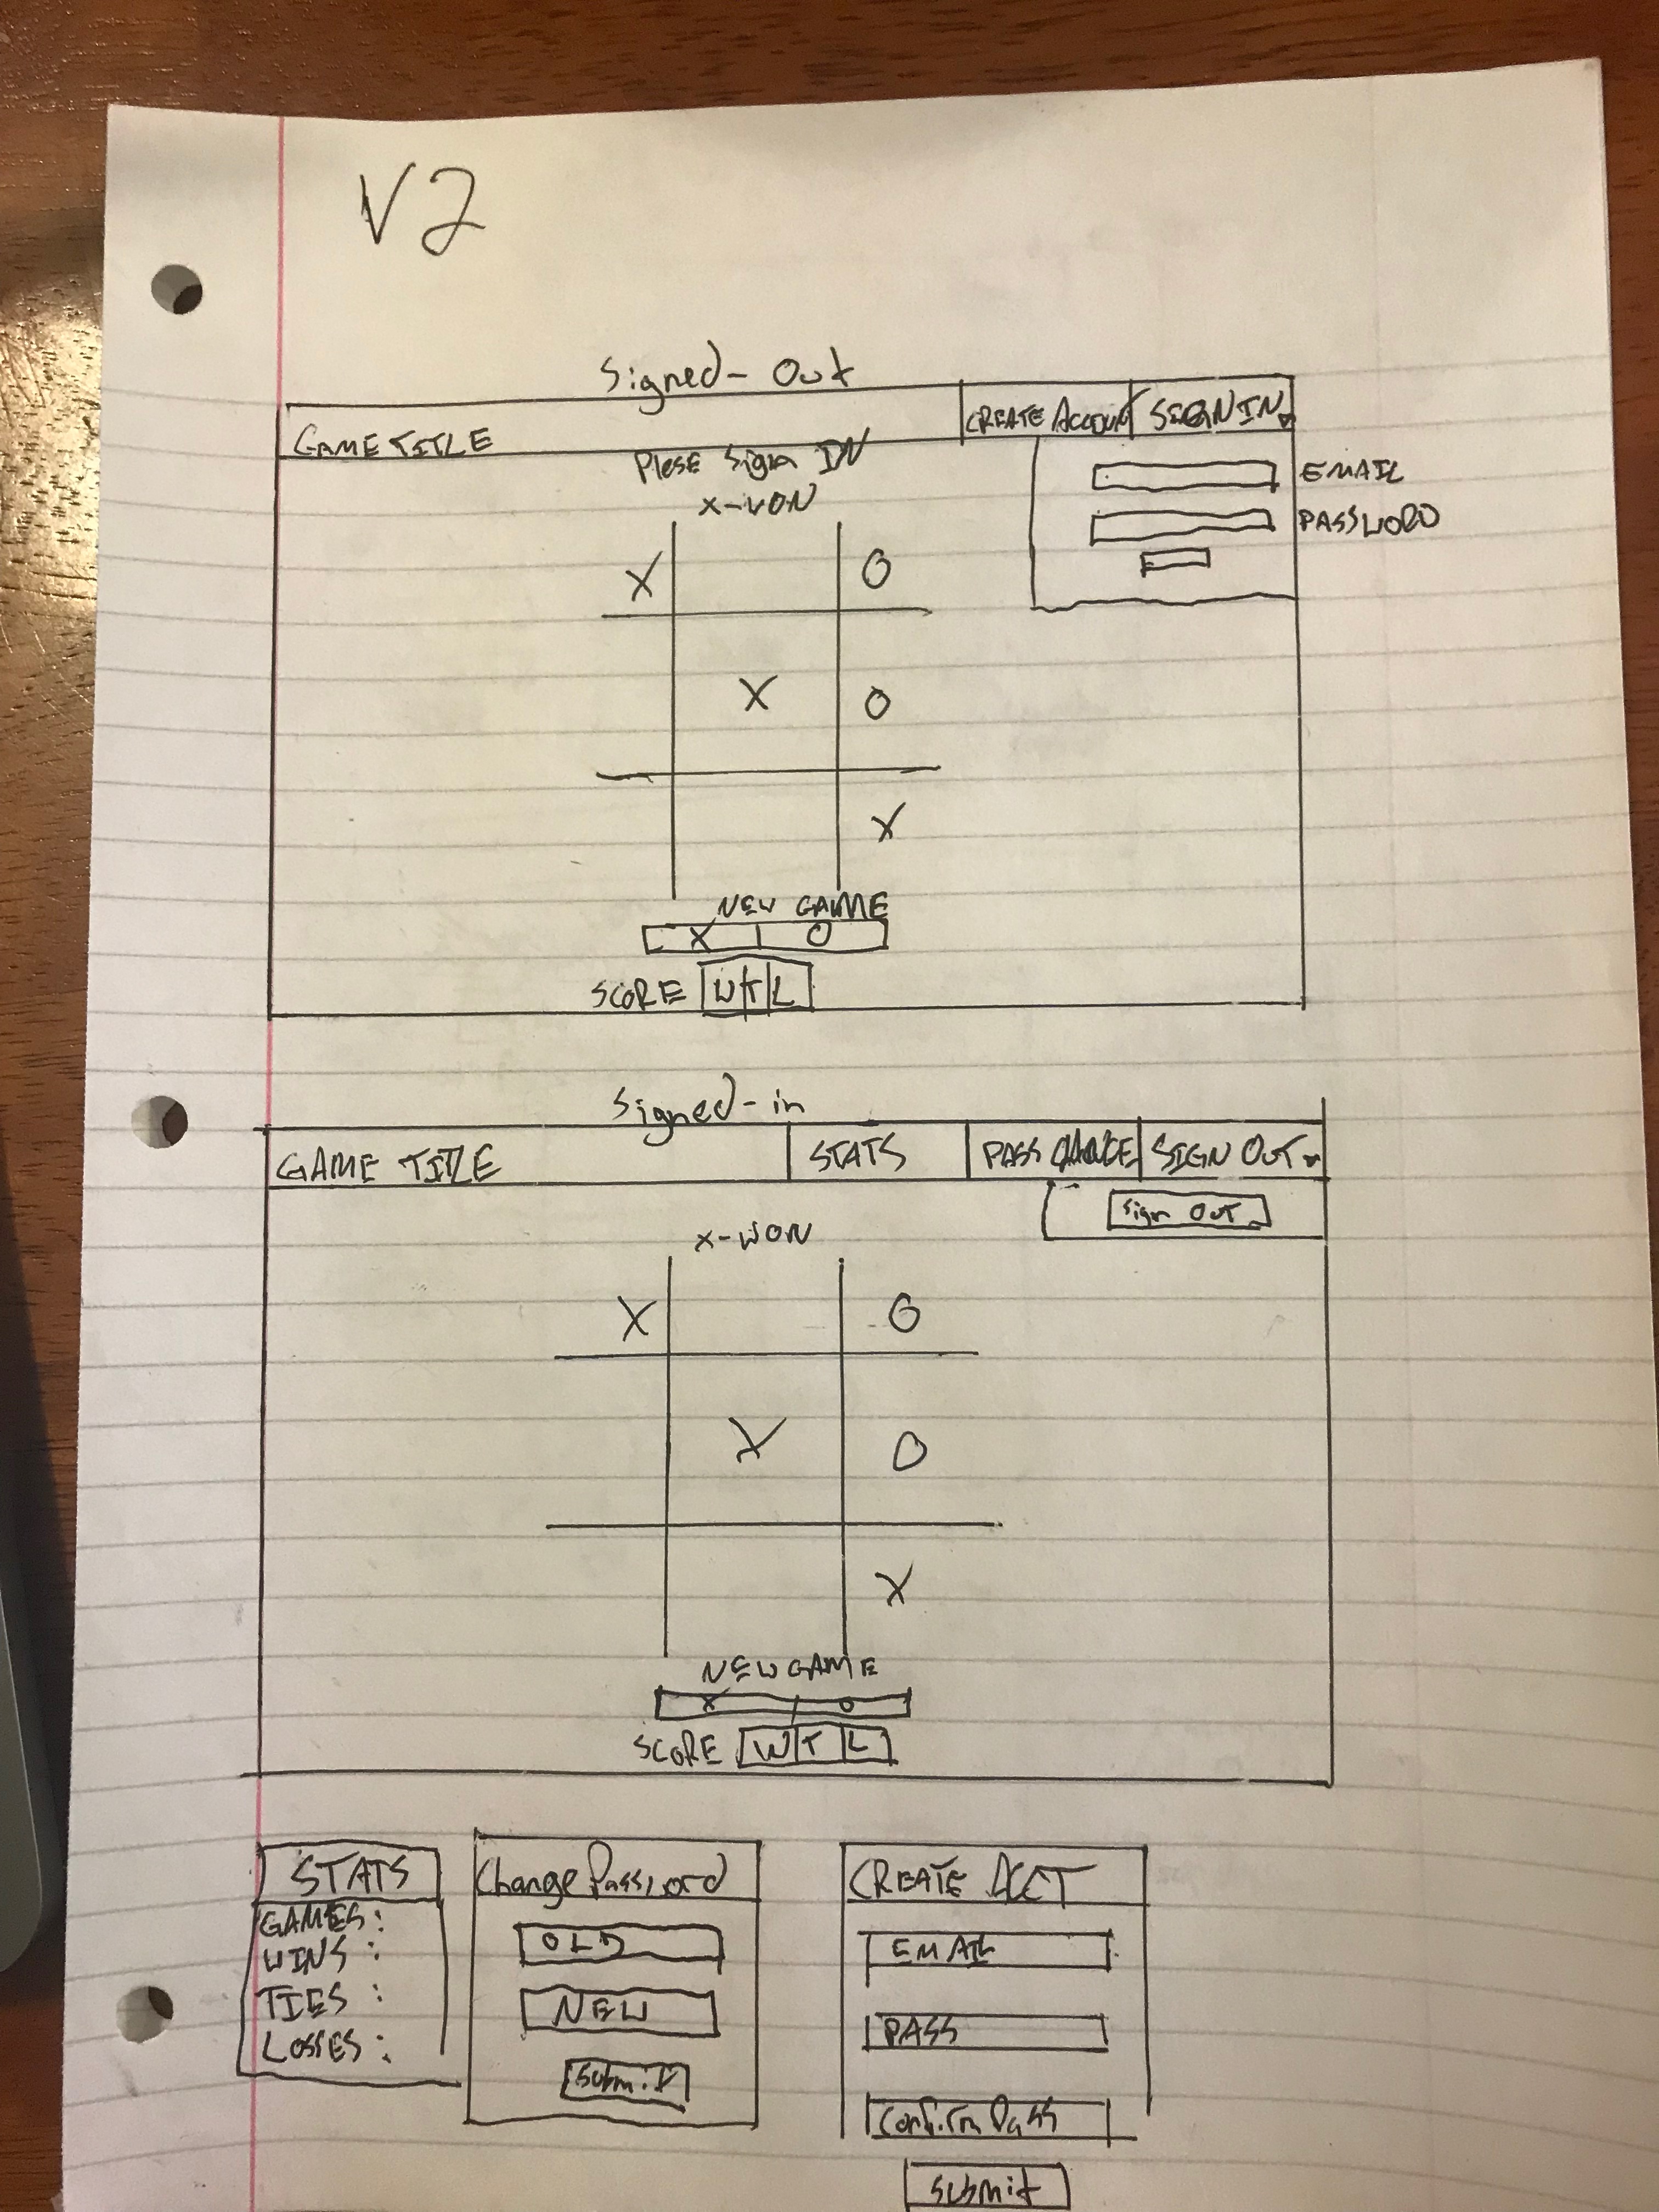 V2
Signed-Out
GAME TITLE CREATE ACCOUNT SIGN IN
Plese Sign IN
EMAIL
X-WON
PASSWORD
X O
X O
X
NEW GAME
X O
SCORE W T L
Signed-in
GAME TITLE STATS PASS CHANGE SIGN OUT
Sign Out
X-WON
X O
X O
X
NEW GAME
X O
SCORE W T L
STATS
GAMES:
WINS :
TIES :
LOSSES :
Change Password
OLD
NEW
Submit
CREATE ACCT
EMAIL
PASS
Confirm Pass
Submit